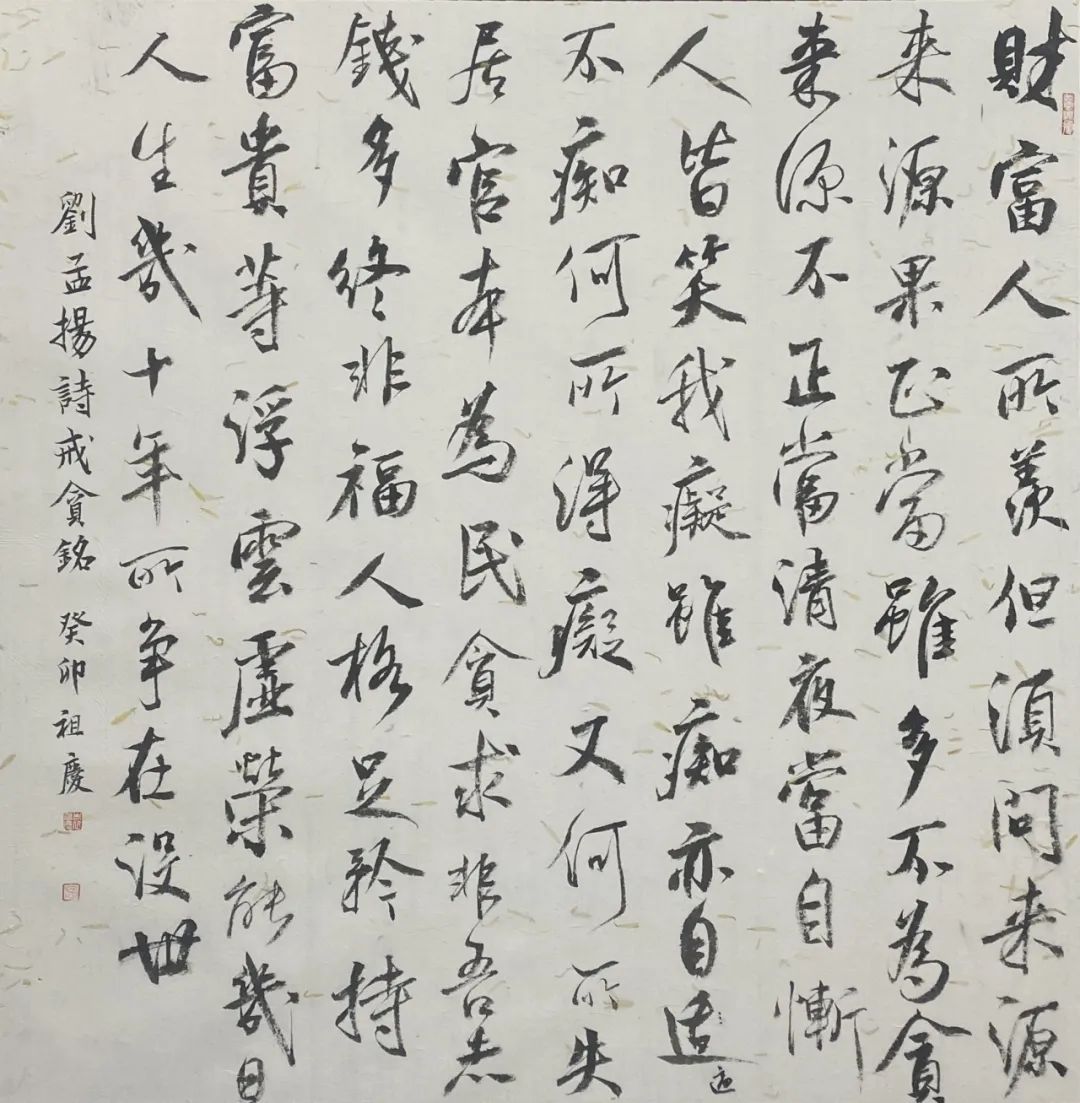 財富人所羨但須問来源
来源果正當雖多不為貪
来源不正當清夜當自慚
人皆笑我癡雖痴亦自適
不痴何所得癡又何所失
居官本為民貪求非吾志
錢多終非福人格足矜持
富貴等浮雲虛榮能幾日
人生幾十年所争在沒世
劉孟揚詩戒貪銘 癸卯祖慶